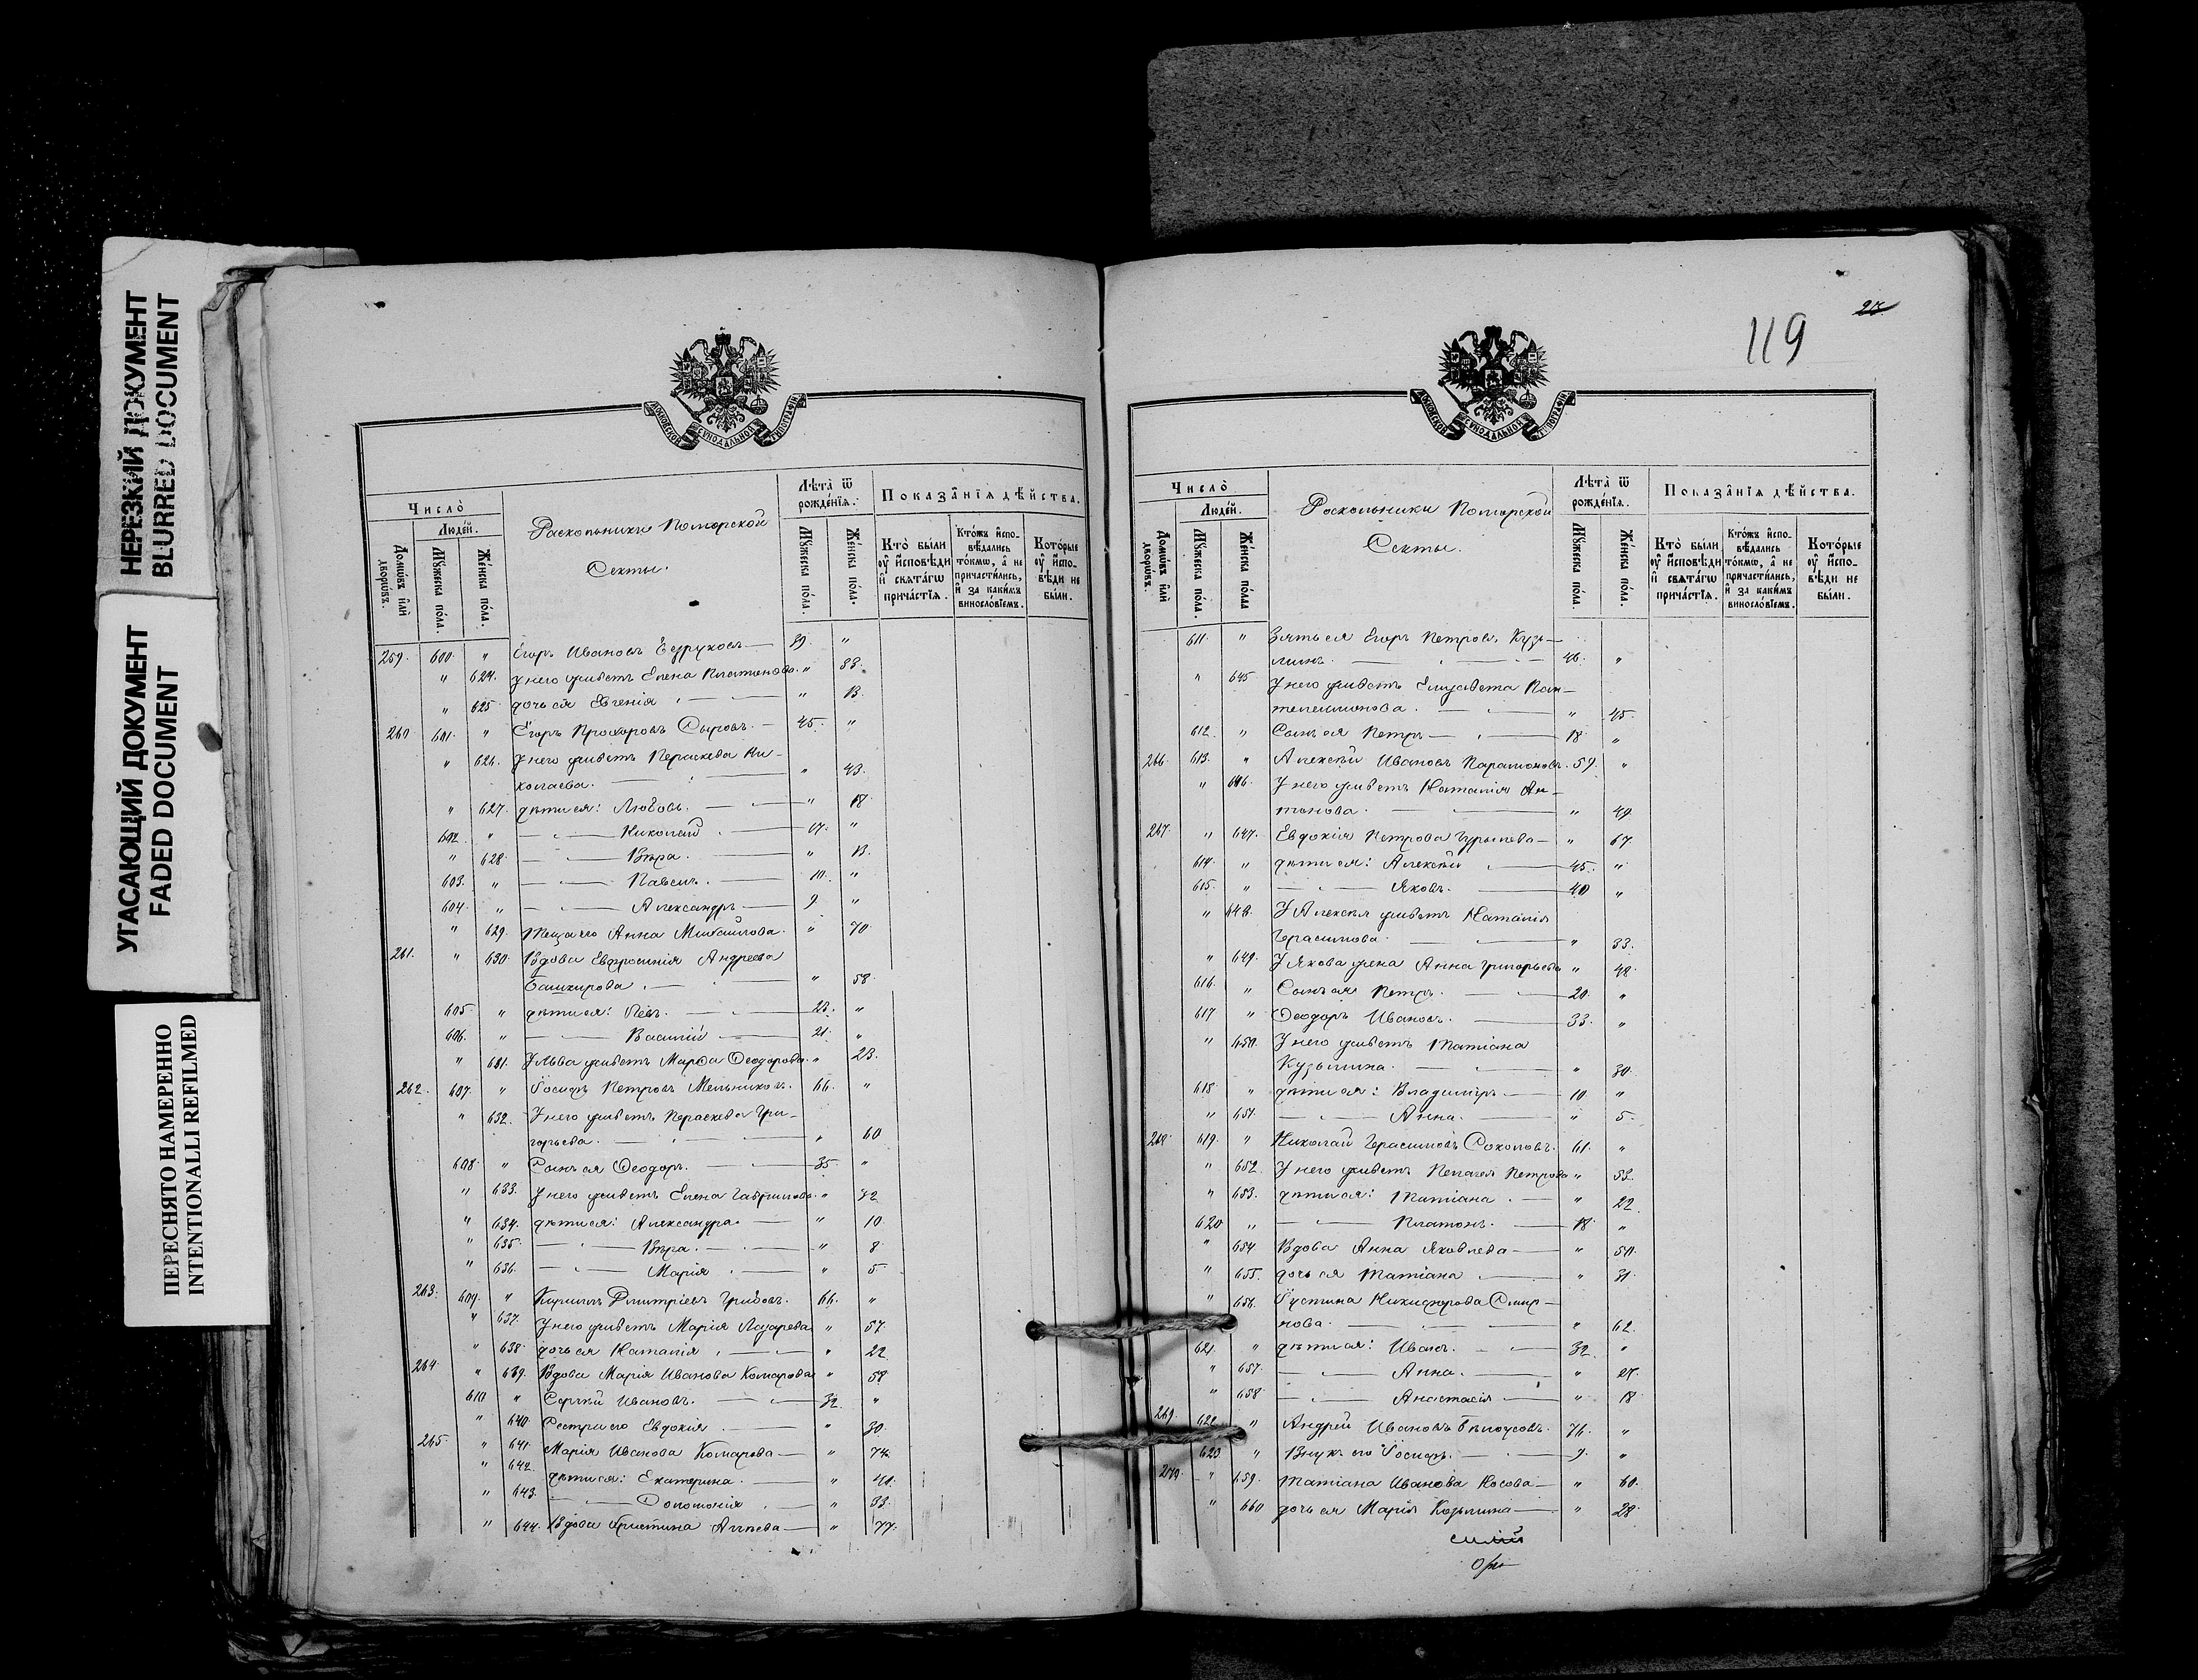 НЕРЕЗКИЙ ДОКУМЕНТ
BLURRED DOCUMENT
УГАСАЮЩИЙ ДОКУМЕНТ
FADED DOCUMENT
ПЕРЕСНЯТО НАМЕРЕННО
INTENTIONALLI REFILMED
МОСКОВСКОЙ СѴНОДАЛЬНОЙ ТИПОГРАФІИ
Число̀
Люде́й.
Домѡ́въ и҆лѝ дворѡ́въ.
Мꙋ́жеска по́ла.
Же́нска по́ла.
Раскольники Поморской
Секты.
Лѣта̀ ѿ рожде́нїѧ.
Мꙋ́жеска по́ла.
Же́нска по́ла.
Показа̂нїѧ дѣ́йства.
Кто̀ бы́ли ᲂу҆ и҆́сповѣди и҆ свѧта́гѡ прича́стїѧ.
Кто́жъ и҆спо-вѣ́дались то́кмѡ, а҆ не причасти́лись, и҆ за каки́мъ винosло́вїемъ.
Кото́рые ᲂу҆ и҆́спо-вѣди не бы́ли.
259. 600. " Егоръ Ивановъ — 39. "
" 624. У него живетъ Елена Платонова. " 38.
" 625. дочь ея Евгенія — " 13.
260 601. " Егоръ Прохоровъ Сыровъ. — 45. "
" 626. У него живетъ Параскева Ни-
колаева. — " 43.
" 627. дѣти ея: Любовь. — " 18.
602. " — Николай — 17. "
" 628. — Вѣра. — " 13.
603. " — Павелъ. — 10. "
604. " — Александръ — 9 "
" 629. Теща его Анна Михайлова. " 70.
261. " 630. Вдова Евфросинія Андреева
Башкирова. — " 58.
605. " дѣти ея: Левъ. — "
606. " — Василій — 21. "
" 631. У Льва живетъ Марѳа Ѳеодорова. " 23.
262. 607. " Іосифъ Петровъ Мельниковъ. 66. "
" 632. У него живетъ Параскева Гри-
горьева. — " 60
608. " Сынъ ея Ѳеодоръ. — 35. "
" 633. У него живетъ Елена Гаврилова. " 32
" 634. дѣти ея: Александра. — " 10.
" 635. — Вѣра. — " 8.
" 636. — Марія — " 5
263. 609. " Кириллъ Дмитріевъ Грибовъ. 66. "
" 637. У него живетъ Марія Лазарева " 57.
" 638. дочь ея Наталія — " 22.
264 " 639. Вдова Марія Иванова Комарова " 58
610 " Сергѣй Ивановъ. — 32. "
" 640. Сестра его Евдокія — " 30.
265 " 641. Марія Иванова Комарова — " 74.
" 642. дѣти ея: Екатерина. — " 40.
" 643. — Соломонія — " 33.
" 644. Вдова Христина — " 77.
119
МОСКОВСКОЙ СѴНОДАЛЬНОЙ ТИПОГРАФІИ
Число̀
Люде́й.
Домѡ́въ и҆лѝ дворѡ́въ.
Мꙋ́жеска по́ла.
Же́нска по́ла
Раскольники Поморской
Секты.
Лѣта̀ ѿ рожде́нїѧ.
Мꙋ́жеска по́ла.
Же́нска по́ла.
Показа̂нїѧ дѣ́йства.
Кто̀ бы́ли ᲂу҆ и҆́сповѣди и҆ свѧта́гѡ прича́стїѧ.
Кто́жъ и҆спо-вѣ́дались то́кмѡ, а҆ не причасти́лись, и҆ за каки́мъ винosло́вїемъ.
Кото́рые ᲂу҆ и҆́спо-вѣди не бы́ли.
611. " Зять ея Егоръ Петровъ Кузь-
минъ. — 46. "
" 645 У него живетъ Елизавета Пан-
телеимонова. — " 45.
612. " Сынъ ея Петръ — 18. "
266. 613. " Алексѣй Ивановъ Парамоновъ. 59. "
" 646. У него живетъ Наталія Ан-
тонова. — " 49.
267. " 647. Евдокія Петрова Гурьнева — " 67.
614. " дѣти ея: Алексѣй — 45. "
615. " — Яковъ. — 40 "
" 648. У Алексѣя живетъ Наталія
Герасимова. — " 33.
" 649. У Якова жена Анна Григорьева " 42.
616. " Сынъ ея Петръ. — 20. "
617 " Ѳеодоръ Ивановъ. — 33. "
" 650. У него живетъ Татіана
Кузьмина. — " 30.
618. " дѣти ея: Владиміръ — 10. "
" 651. — Анна. — " 5.
268. 619. " Николай Герасимовъ Соколовъ. 61. "
" 652. У него живетъ Пелагея Петрова "
" 653. дѣти ея: Татіана — " 22.
620 " — Платонъ. — 18. "
" 654. Вдова Анна Яковлева — " 50.
" 655. дочь ея Татіана — " 31.
" 656. Іустина Никифорова Смир-
нова. — " 62.
621. " дѣти ея: Иванъ. — 32. "
" 657. — Анна. — "
" 658 — Анастасія — " 18.
269. 622. " Андрей Ивановъ Бѣлоусовъ. 76. "
623. " Внукъ его Іосифъ. — 9. "
270. " 659. Татіана Иванова Носова — " 60.
" 660 дочь ея Марія Козьмина — " 28